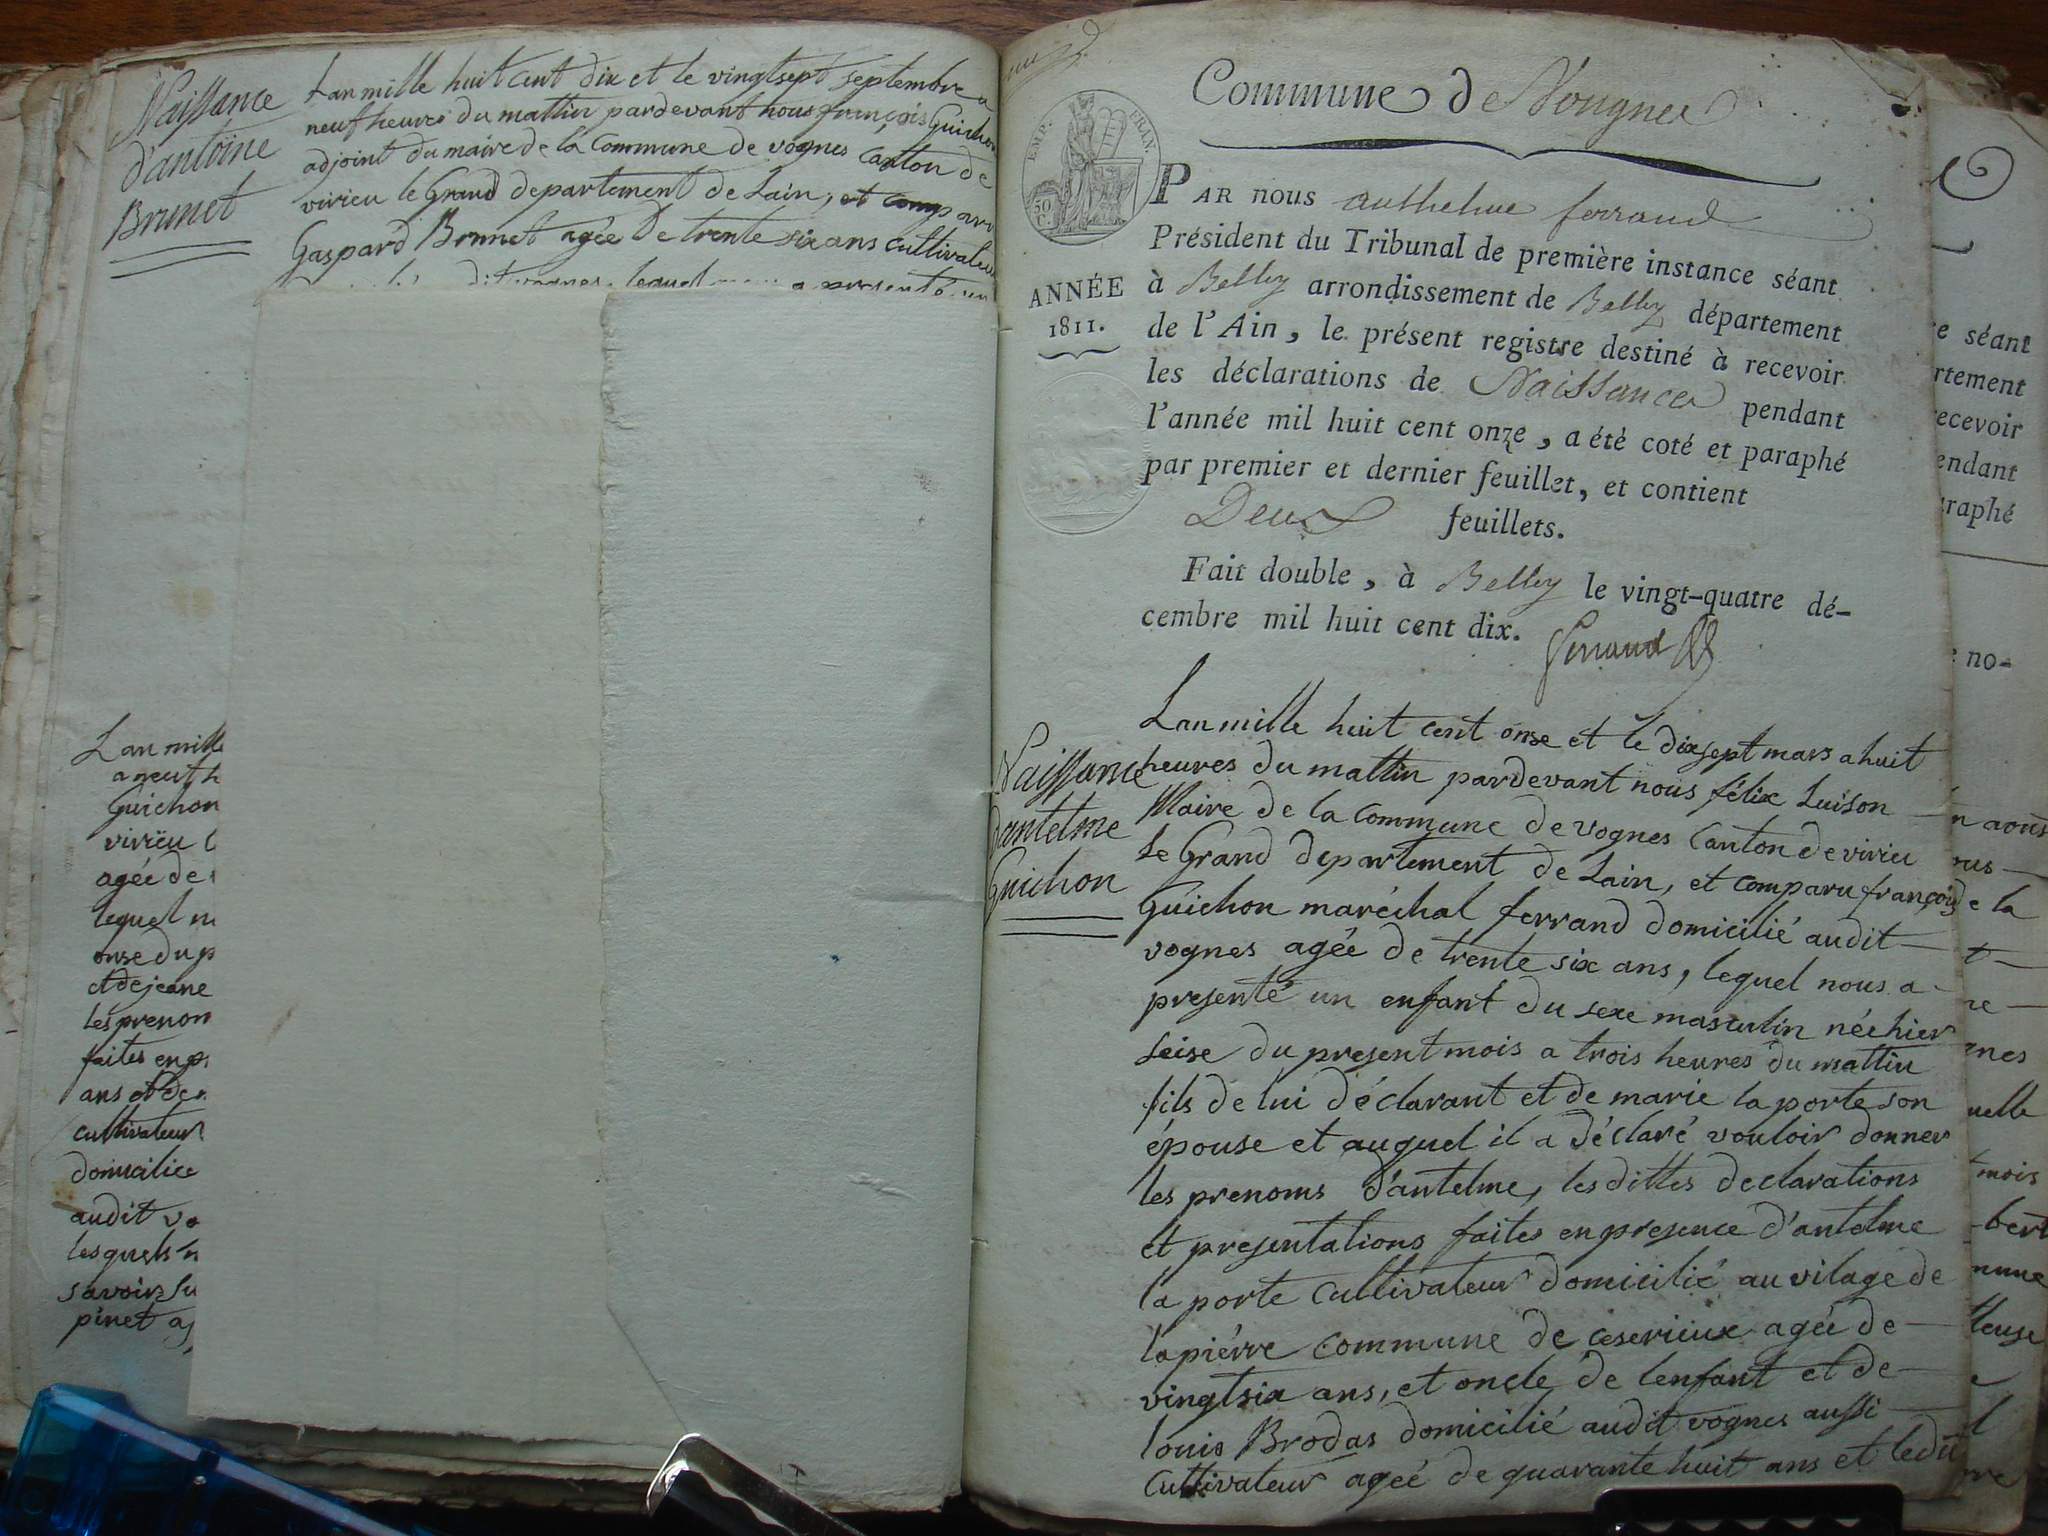 Naissance
d'antoine
Brunet
Lan mille huit cent dix et le vingtsept septembre a
neuf heures du mattin pardevant nous françois Guichon
adjoint du maire de la Commune de vognes canton de
virieu le Grand departement de Lain, et comparu
Gaspard Brunet agée de trente six ans cultivateur
dit vognes lequel a presenté un
Lan mille
a neuf h
Guichon
virieu l
agée de
lequel n
onse du p
et de jeane
les prenom
faites en p
ans et de
cultivateur
domicilice
audit vo
les quels n
savoir su
pinet a
Commune de Vougnes
EMP. FRAN.
50
C.
PAR nous anthelme ferrand
Président du Tribunal de première instance séant
ANNÉE
1811.
à Belley arrondissement de Belley département
de l'Ain, le présent registre destiné à recevoir
les déclarations de Naissances pendant
l'année mil huit cent onze, a été coté et paraphé
par premier et dernier feuillet, et contient
Deux feuillets.
Fait double, à Belley le vingt-quatre dé-
cembre mil huit cent dix. Ferrand
Naissance
dantelme
Guichon
Lan mille huit cent onse et le dixsept mars a huit
heures du mattin pardevant nous félix Luison
Maire de la Commune de vognes Canton de virieu
le Grand departement de Lain, et comparu françois
Guichon maréchal ferrand domicilié audit
vognes agée de trente six ans, lequel nous a
presenté un enfant du sexe masculin né hier
seise du present mois a trois heures du mattin
fils de lui déclarant et de marie la porte son
épouse et auquel il a déclaré vouloir donner
les prenoms d'antelme, les dittes declarations
et presentations faites en presence d'antelme
la porte cultivateur domicilié au vilage de
lapiérre commune de ceserieux agée de
vingtsix ans, et oncle de lenfant et de
louis Brodas domicilié audit vognes aussi
Cultivateur agée de quarante huit ans et le dit
e séant
rtement
ecevoir
endant
raphé
no-
n aout
ous
e la
t
ne
gnes
uelle
mois
bert
mune
leuse